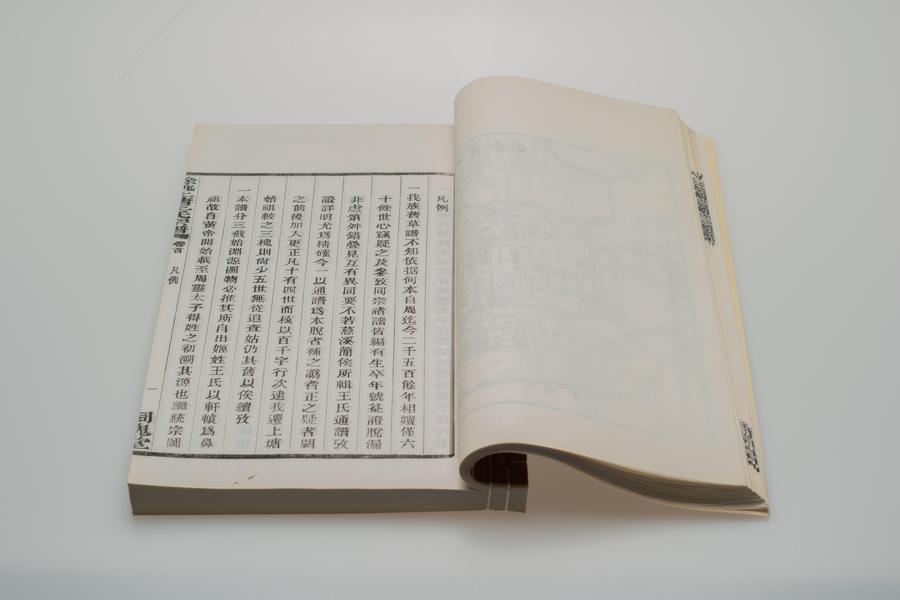 凡例
一我族舊草譜不知依据何本自周迄今二千五百餘年相嬗僅六
十餘世心竊疑之及參攷同宗諸譜皆編有生卒年號益證脫漏
非虛第舛錯疊見互有異同要不若慈溪簡侯所輯王氏通譜攷
證詳明尤爲精確今一以通譜爲本脫者補之譌者正之疑者闕
之前後加入更正凡十有四世而核以百千字行次逮我遷上塘
始祖較之三槐則尚少五世無從追查姑仍其舊以俟續攷
一本譜分三截始淵源圖物必推其所自出姬姓王氏以軒轅爲鼻
祖故自黃帝開始載至周靈太子得姓之初溯其源也繼統宗圖
卷首
凡例
一